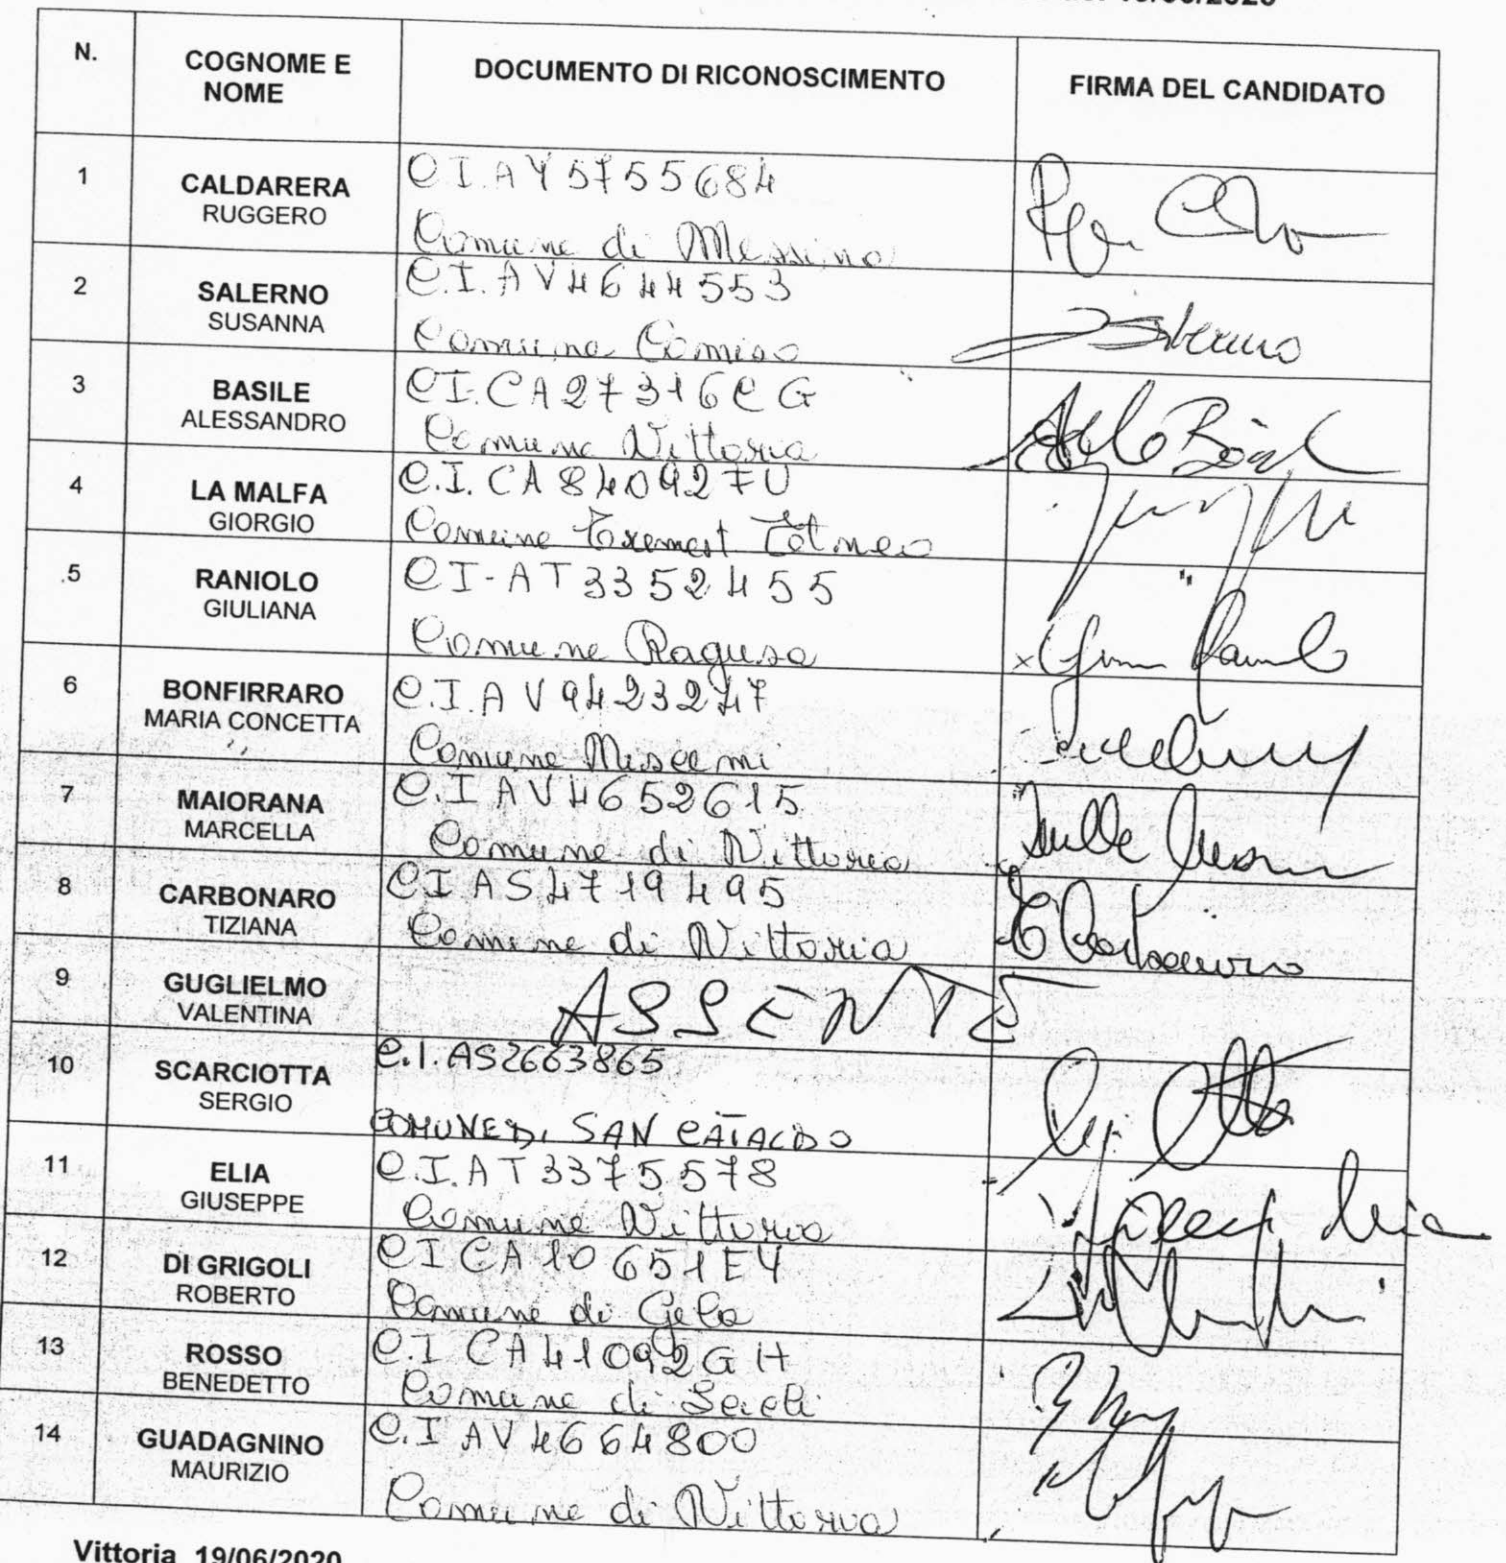 19/06/2020
N.
COGNOME E
NOME
DOCUMENTO DI RICONOSCIMENTO
FIRMA DEL CANDIDATO
1
CALDARERA
RUGGERO
C.I. AY5755684
Comune di Messina
2
SALERNO
SUSANNA
C.I. AV4644553
Comune Comiso
SSalerno
3
BASILE
ALESSANDRO
CI. CA27316CG
Comune Vittoria
4
LA MALFA
GIORGIO
C.I. CA84092FU
Comune Tremest Etneo
5
RANIOLO
GIULIANA
CI-AT3352455
Comune Ragusa
6
BONFIRRARO
MARIA CONCETTA
C.I. AV9423247
Comune Niscemi
7
MAIORANA
MARCELLA
C.I AV4652615
Comune di Vittoria
8
CARBONARO
TIZIANA
CI AS4719495
Comune di Vittoria
T Carbonaro
9
GUGLIELMO
VALENTINA
ASSENTE
10
SCARCIOTTA
SERGIO
C.I. AS2663865
COMUNE DI SAN CATALDO
11
ELIA
GIUSEPPE
C.I. AT3375578
Comune Vittoria
12
DI GRIGOLI
ROBERTO
CI CA10651EY
Comune di Gela
13
ROSSO
BENEDETTO
C.I CA41092GH
Comune di Scicli
14
GUADAGNINO
MAURIZIO
C.I AV4664800
Comune di Vittoria
Vittoria 19/06/2020